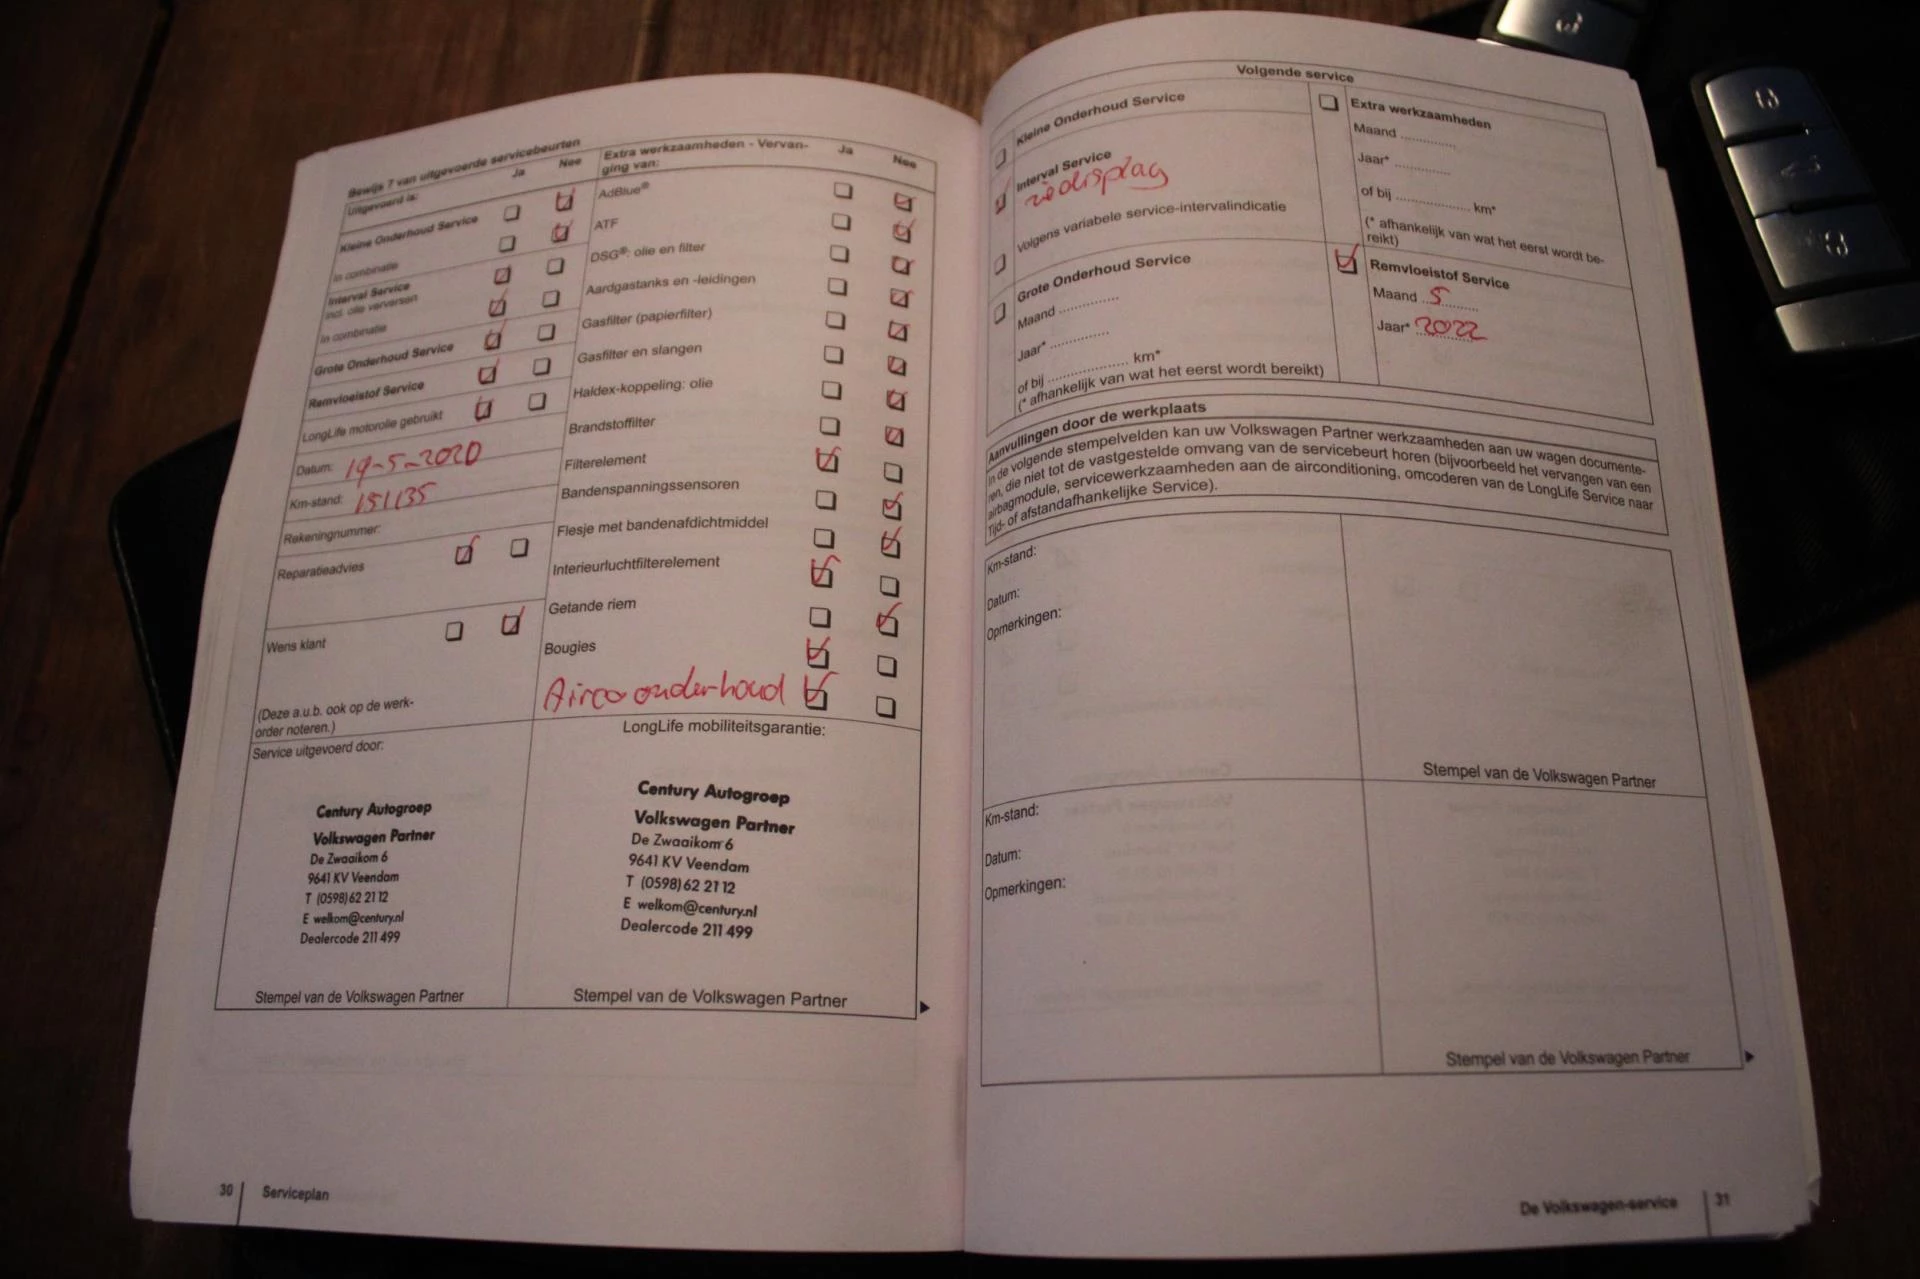 Bewijs 7 van uitgevoerde servicebeurten
Uitgevoerd is:
Ja
Nee
Kleine Onderhoud Service
In combinatie
Interval Service
incl. olie verversen
In combinatie
Grote Onderhoud Service
Remvloeistof Service
LongLife motorolie gebruikt
Datum: 19-5-2020
Km-stand: 151135
Rekeningnummer:
Reparatieadvies
Wens klant
(Deze a.u.b. ook op de werk-
order noteren.)
Extra werkzaamheden - Vervan-
ging van:
Ja
Nee
AdBlue®
ATF
DSG®: olie en filter
Aardgastanks en -leidingen
Gasfilter (papierfilter)
Gasfilter en slangen
Haldex-koppeling: olie
Brandstoffilter
Filterelement
Bandenspanningssensoren
Flesje met bandenafdichtmiddel
Interieurluchtfilterelement
Getande riem
Bougies
Airco onderhoud
Service uitgevoerd door:
Century Autogroep
Volkswagen Partner
De Zwaaikom 6
9641 KV Veendam
T (0598) 62 21 12
E welkom@century.nl
Dealercode 211 499
Stempel van de Volkswagen Partner
LongLife mobiliteitsgarantie:
Century Autogroep
Volkswagen Partner
De Zwaaikom 6
9641 KV Veendam
T (0598) 62 21 12
E welkom@century.nl
Dealercode 211 499
Stempel van de Volkswagen Partner
30
Serviceplan
Volgende service
Kleine Onderhoud Service
Interval Service
zie display
Volgens variabele service-intervalindicatie
Grote Onderhoud Service
Maand ..............
Jaar* ..............
of bij .................... km*
(* afhankelijk van wat het eerst wordt bereikt)
Extra werkzaamheden
Maand .............
Jaar* .............
of bij .................. km*
(* afhankelijk van wat het eerst wordt be-
reikt)
Remvloeistof Service
Maand 5
Jaar* 2022
Aanvullingen door de werkplaats
In de volgende stempelvelden kan uw Volkswagen Partner werkzaamheden aan uw wagen documente-
ren, die niet tot de vastgestelde omvang van de servicebeurt horen (bijvoorbeeld het vervangen van een
airbagmodule, servicewerkzaamheden aan de airconditioning, omcoderen van de LongLife Service naar
Tijd- of afstandafhankelijke Service).
Km-stand:
Datum:
Opmerkingen:
Stempel van de Volkswagen Partner
Km-stand:
Datum:
Opmerkingen:
Stempel van de Volkswagen Partner
De Volkswagen-service
31